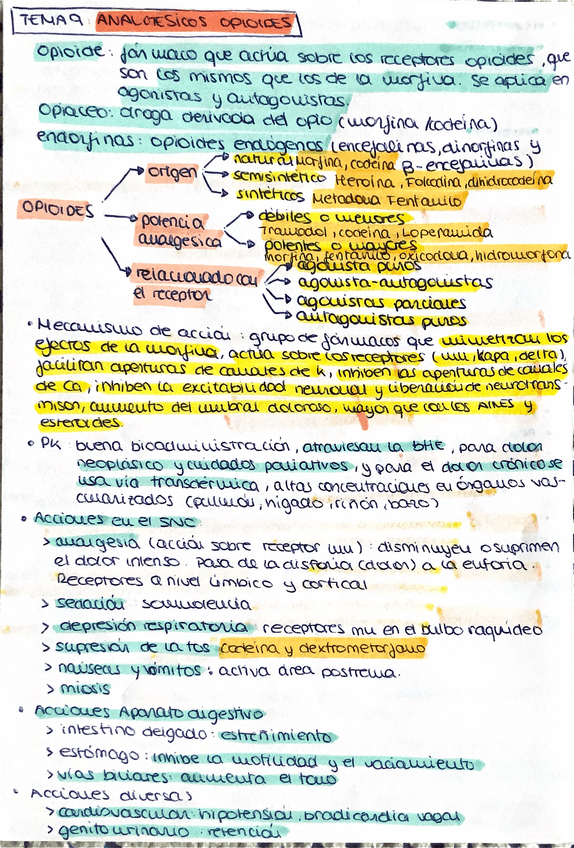 TEMA 9: ANALGESICOS OPIOIDES
Opioide: fármaco que actúa sobre los receptores opioides, que
son los mismos que los de la morfina. Se aplica en
agonistas y antagonistas.
Opiaceo: droga derivada del opio (morfina/codeína)
endorfinas: opioides endógenos (encefalinas, dinorfinas y
β-encefalinas)
OPIOIDES
origen
natural morfina, codeína
semisintético Heroína, Folcodina, dihidrocodeína
sintéticos Metadona Fentanilo
potencia
analgesica
débiles o menores
Tramadol, codeína, Loperamida
potentes o mayores
morfina, fentanilo, oxicodona, hidromorfona
relacionado con
el receptor
agonista puros
agonista-antagonistas
agonistas parciales
antagonistas puros
• Mecanismo de acción: grupo de fármacos que mimetizan los
efectos de la morfina, actúa sobre los receptores (mu, Kapa, delta),
facilitan aperturas de canales de K, inhiben las aperturas de canales
de Ca, inhiben la excitabilidad neuronal y liberación de neurotrans-
misor, aumento del umbral doloroso, mayor que con los AINEs y
esteroides.
• PK: buena bioadministración, atraviesan la BHE, para dolor
neoplásico y cuidados paliativos, y para el dolor crónico se
usa vía transdérmica, altas concentraciones en órganos vas-
cularizados (pulmón, hígado, riñón, bazo)
• Acciones en el SNC:
> analgesia (acción sobre receptor mu): disminuyen o suprimen
el dolor intenso. Pasa de la disforia (dolor) a la euforia.
Receptores a nivel límbico y cortical
> sedación: somnolencia
> depresión respiratoria: receptores mu en el bulbo raquídeo
> supresión de la tos codeína y dextrometorfano
> náuseas y vómitos: activa área postrema.
> miosis
• Acciones Aparato digestivo
> intestino delgado: estreñimiento
> estómago: inhibe la motilidad y el vaciamiento
> vías biliares: aumenta el tono
• Acciones diversas
> cardiovascular: hipotensión, bradicardia vagal
> genitourinario: retención